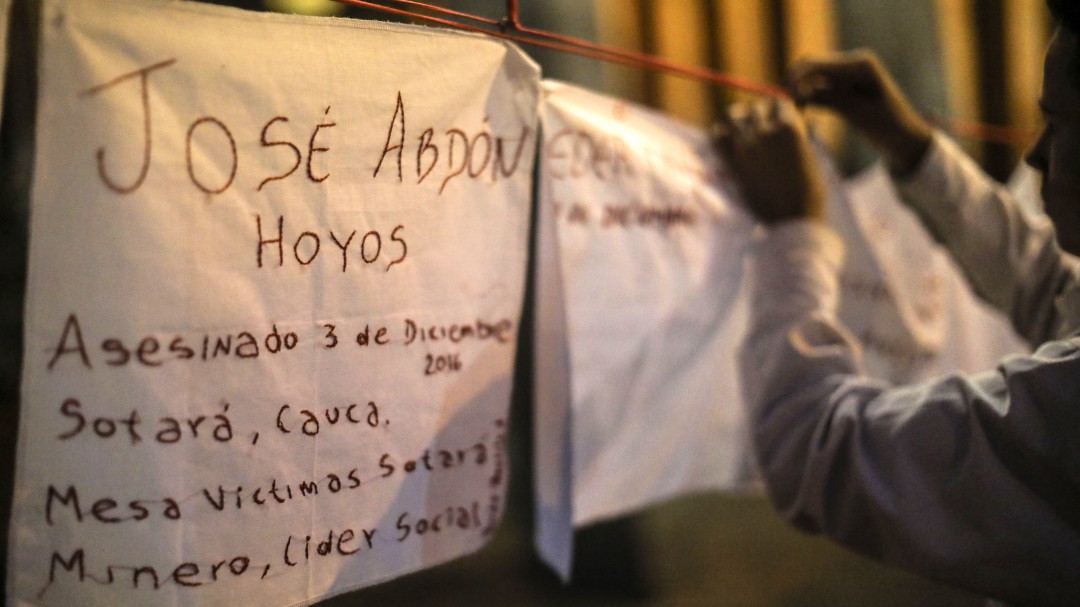 JOSÉ ABDÓN
HOYOS
Asesinado 3 de Diciembre
2016
Sotará, Cauca.
Mesa Víctimas Sotará
Minero, Líder Social
EDER
de Diciembre